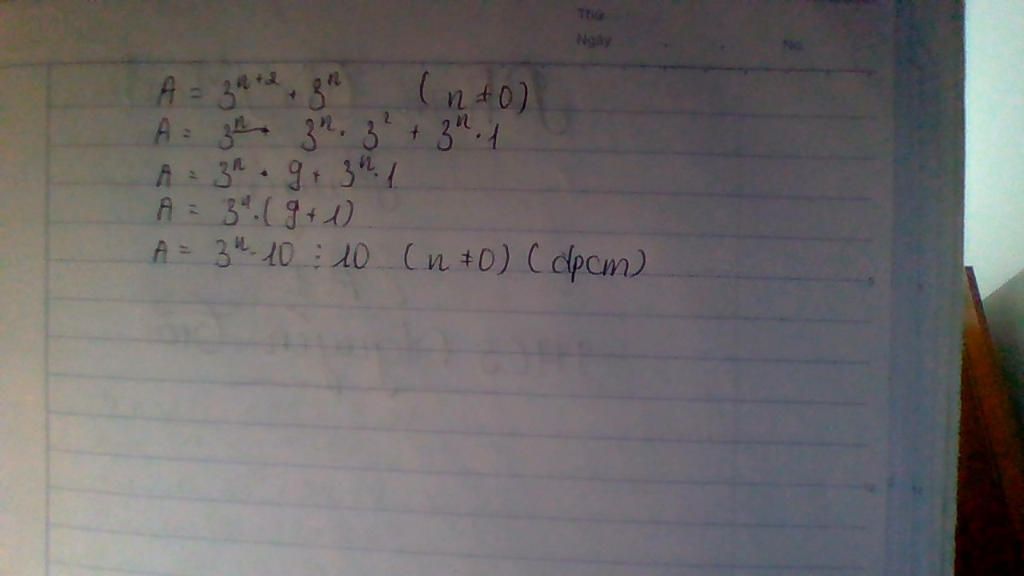 Thứ
Ngày No.
A = 3ⁿ⁺² + 3ⁿ (n ≠ 0)
A = 3ⁿ · 3² + 3ⁿ · 1
A = 3ⁿ · 9 + 3ⁿ · 1
A = 3ⁿ · (9 + 1)
A = 3ⁿ · 10 ⋮ 10 (n ≠ 0) (đpcm)